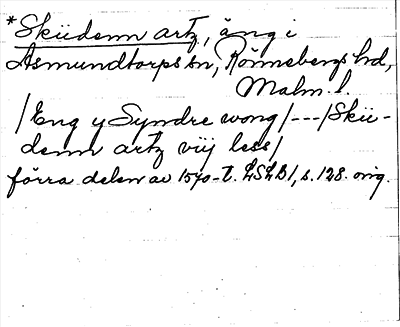 *Sküdenn artz, äng i
Asmundtorps sn, Rönnebergs hd,
Malm. l.
/Eng y Syndre wong/---/Skü-
denn artz viij less/
förra delen av 1570-t. LSLB 1, s. 128. orig.